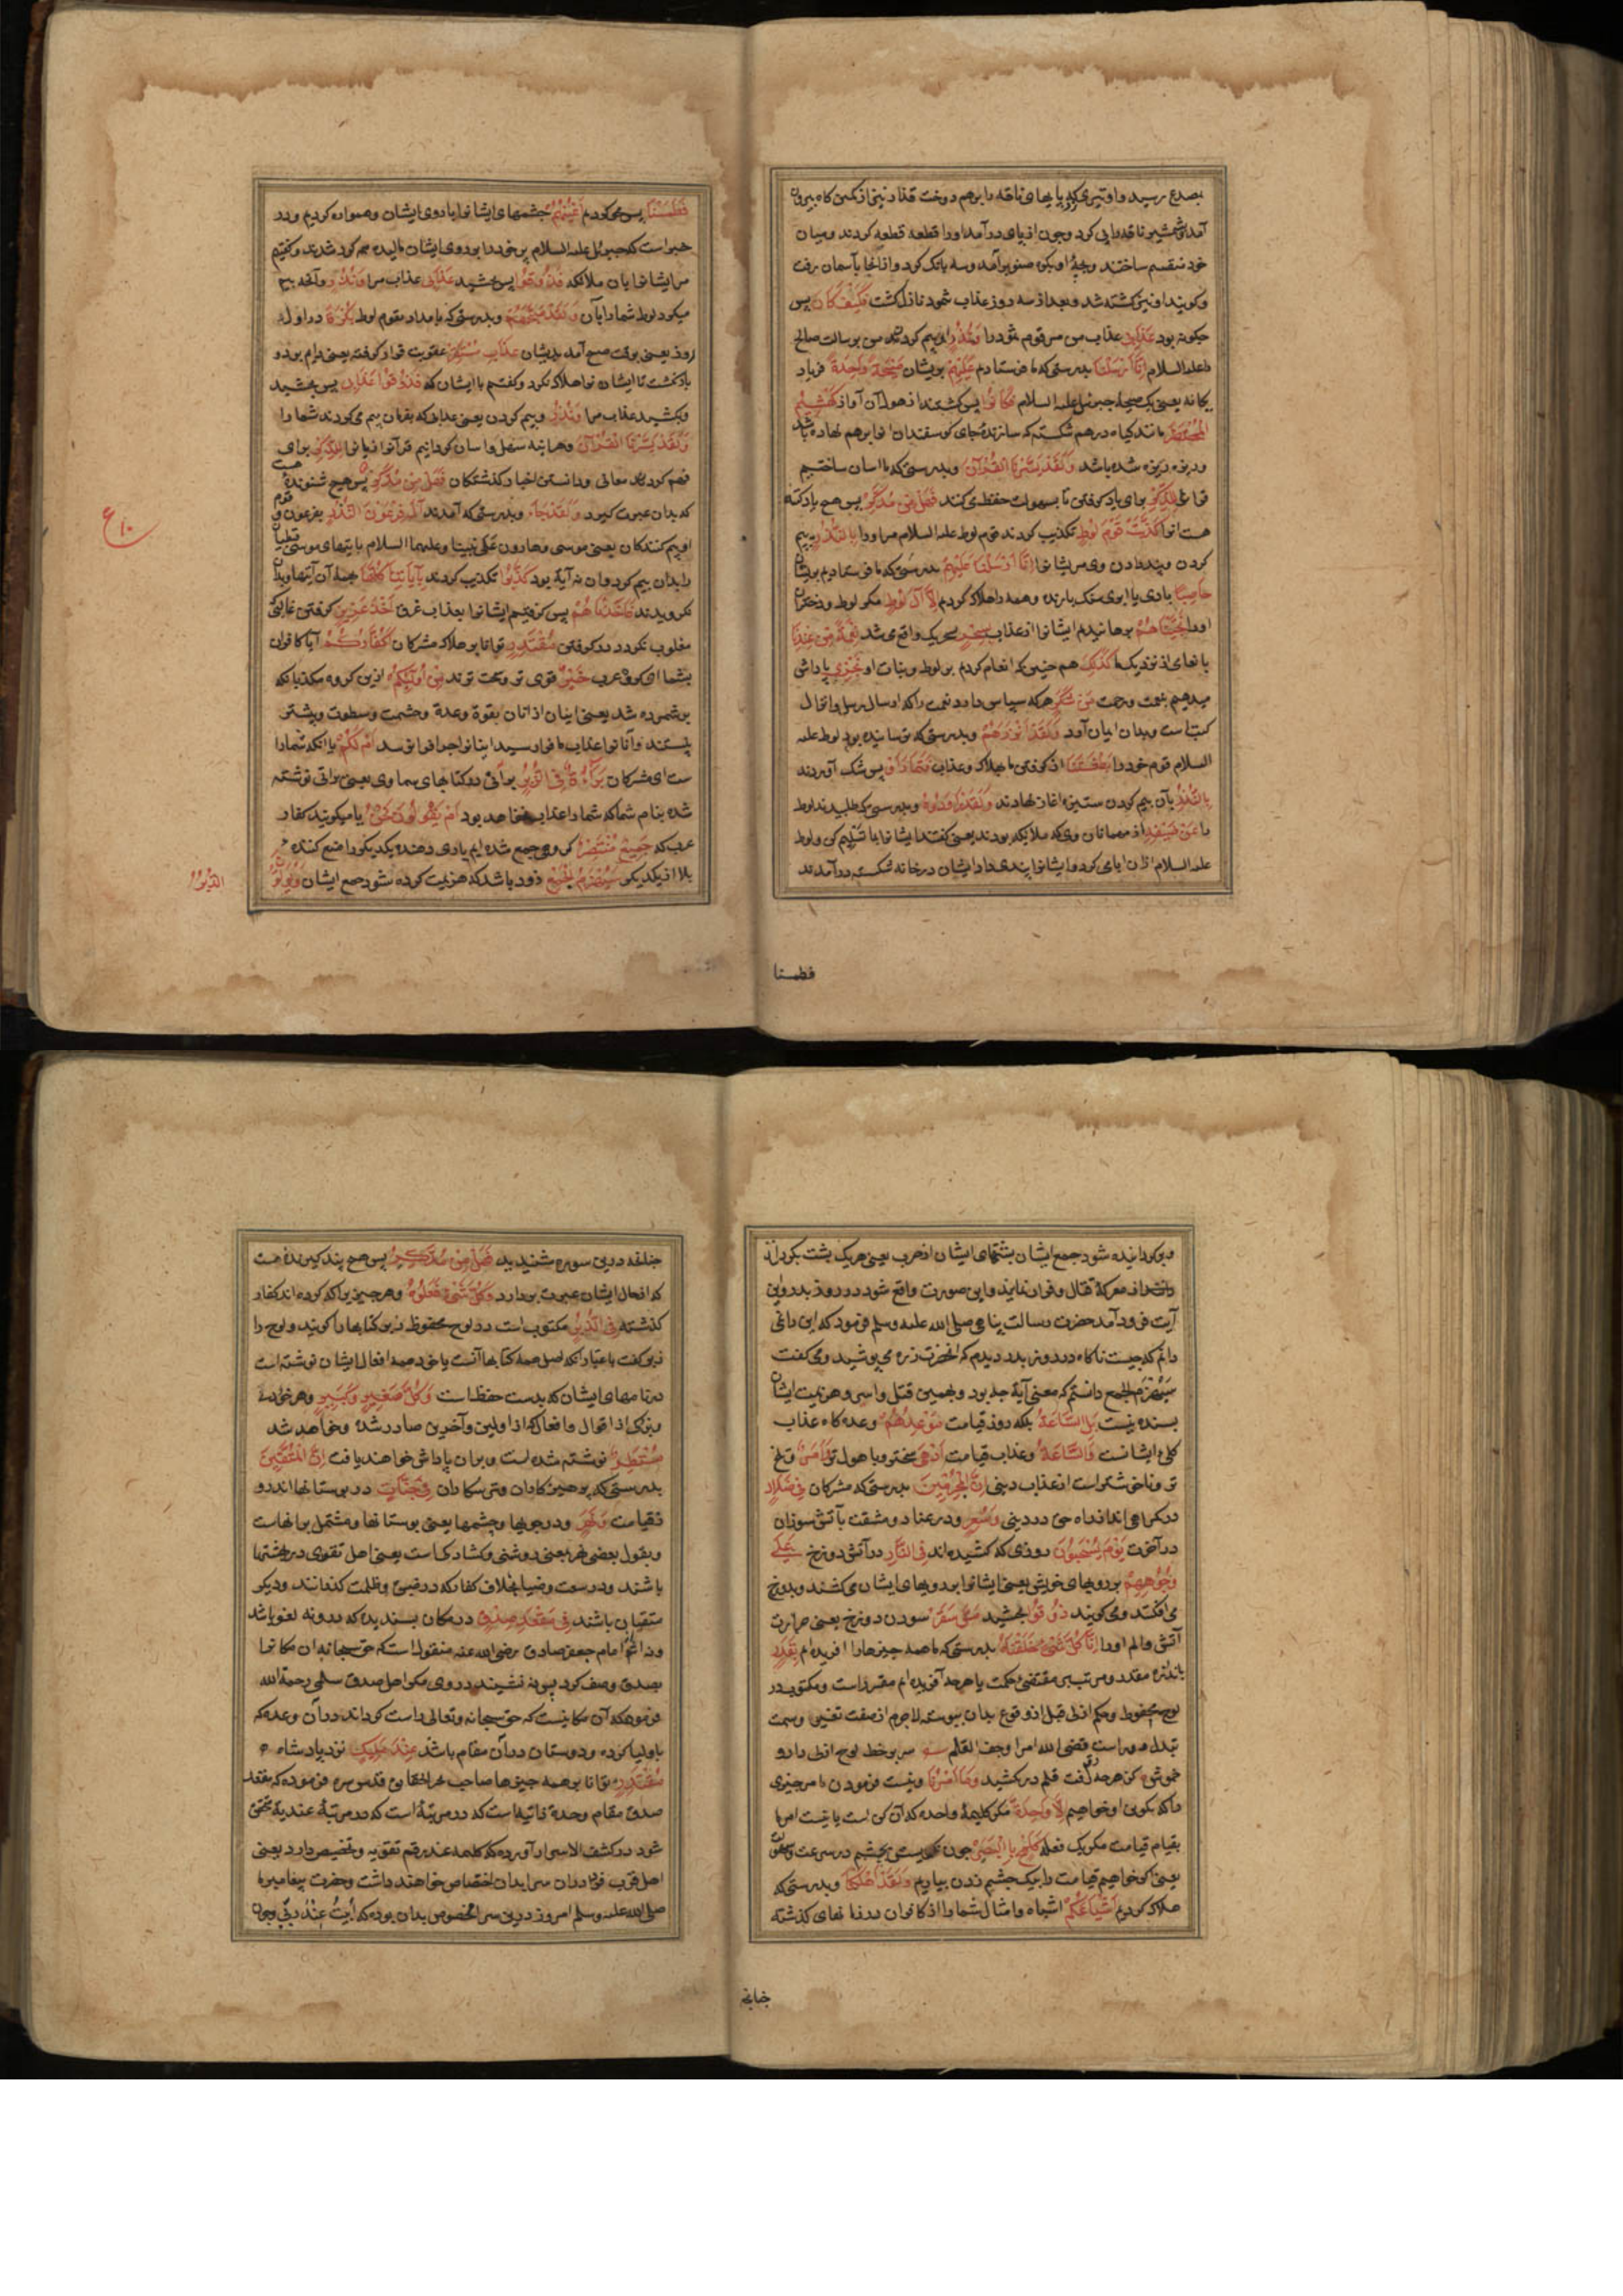 بصدع رسید و او تیری که پایهای ناقه را برهم دوخت قدار نیز از کمین کاه بیرون
آمد شمشیر ناقه را پی کرد و چون از پای درآمد او را قطعه قطعه کردند و میان
خود منقسم ساختند و بچهٔ او بکوه صنو برآمد و سه بانک کرد و از آنجا بآسمان رفت
و کویند او نیز کشته شد و بعد از سه روز عذاب ثمود نازل کشت فَكَيْفَ كَانَ پس
چکونه بود عَذَابِي عذاب من مر قوم ثمود را وَنُذُرِ و بیم کردن من برسالت صالح
علیه السلام إِنَّا أَرْسَلْنَا بدرستی که ما فرستادیم عَلَيْهِمْ بریشان صَيْحَةً وَاحِدَةً فریاد
یکانه یعنی یک صیحه جبرئیل علیه السلام فَكَانُوا پس کشتند از هول آن آواز كَهَشِيمِ
الْمُحْتَظِرِ مانند کیاه درهم شکسته که سازندهٔ جای کوسفندان انرا برهم نهاده باشد
و ریزه ریزه شده باشد وَلَقَدْ يَسَّرْنَا الْقُرْآنَ و بدرستی که ما اسان ساختیم
قرآن لِلذِّكْرِ برای یاد کرفتن تا بسهولت حفظ می کنند فَهَلْ مِن مُّدَّكِرٍ پس هیچ یاد کننده
هست انرا كَذَّبَتْ قَوْمُ لُوطٍ تکذیب کردند قوم لوط علیه السلام مر او را بِالنُّذُرِ به بیم
کردن و پند دادن وی مر ایشانرا إِنَّا أَرْسَلْنَا عَلَيْهِمْ بدرستی که ما فرستادیم بریشان
حَاصِبًا بادی یا ابری سنک بارنده و همه را هلاک کردیم إِلَّا آلَ لُوطٍ مکر لوط و دختران
او را نَجَّيْنَاهُم برهانیدیم ایشانرا از عذاب بِسَحَرٍ سحر یک واقع می شد نِعْمَةً مِّنْ عِندِنَا
بانعامی از نزدیک ما كَذَلِكَ هم چنین که انعام کردیم بر لوط و بنات او نَجْزِي پاداش
میدهیم بنعمت و رحمت مَن شَكَرَ هر که سپاس دارد نعمت را که ارسال رسل و انزال
کتابست و بدان ایمان آرد وَلَقَدْ أَنذَرَهُم و بدرستی که ترسانیده بود لوط علیه
السلام قوم خود را بَطْشَتَنَا از کرفتن ما بهلاک و عذاب فَتَمَارَوْا پس شک آوردند
بِالنُّذُرِ بآن بیم کردن ستیزه اغاز نهادند وَلَقَدْ رَاوَدُوهُ و بدرستی که طلبیدند لوط
را عَن ضَيْفِهِ از مهمانان وی که ملائکه بودند یعنی کفتند ایشانرا بما تسلیم کن و لوط
علیه السلام ازان ابا می کرد و ایشانرا پند می داد ایشان در خانه شکسته در آمدند
فطمسنا
فَطَمَسْنَا پس محو کردیم أَعْيُنَهُمْ چشمهای ایشانرا یا روی ایشان و هموار کردیم و در
خبر است که جبرئیل علیه السلام پر خود را بر روی ایشان مالیده همه کور شدند و کفتیم
مر ایشانرا بزبان ملائکه فَذُوقُوا پس بچشید عَذَابِي عذاب مرا وَنُذُرِ و آنچه بیم
میکرد لوط شما را بآن وَلَقَدْ صَبَّحَهُم و بدرستی که بامداد بقوم لوط بُكْرَةً در اول
روز یعنی بوقت صبح آمد بدیشان عَذَابٌ مُّسْتَقِرٌّ عقوبت قرار کرفته یعنی دایم بود و
باز نکشت تا ایشان را هلاک نکرد و کفتیم با ایشان که فَذُوقُوا عَذَابِي پس بچشید
و بکشید عذاب مرا وَنُذُرِ و بیم کردن یعنی عذابی که بفرمان بیم می کردند شما را
وَلَقَدْ يَسَّرْنَا الْقُرْآنَ و هرآینه سهل و اسان کردانیم قرآنرا لِلذِّكْرِ برای
فهم کردن معانی و دانستن اخبار کذشتکان فَهَلْ مِن مُّدَّكِرٍ پس هیچ شنونده هست
که بدان عبرت کیرد وَلَقَدْ جَاءَ و بدرستی که آمدند آلَ فِرْعَوْنَ النُّذُرُ بفرعون و قوم
او بیم کنندکان یعنی موسی و هارون علی نبینا و علیهما السلام بایتهای موسی قبطیان
را بدان بیم کرد و ان نه آیة بود كَذَّبُوا تکذیب کردند بِآيَاتِنَا كُلِّهَا همهٔ آن آیتها و بدان
نکرویدند فَأَخَذْنَاهُمْ پس کرفتیم ایشانرا بعذاب غرق أَخْذَ عَزِيزٍ کرفتن غالبی که
مغلوب نکردد در کرفتن مُّقْتَدِرٍ توانا بر هلاک مشرکان أَكُفَّارُكُمْ آیا کافران
شما ای کروه عرب خَيْرٌ قوی تر و سخت ترند مِّنْ أُولَئِكُمْ ازین کروه مکذبان که
بر شمرده شد یعنی اینان از اتان بقوة و عدة و حشمت و سطوت و بیشتر
نیستند و آنانرا عذاب ما فرا رسید اینانرا چرا فرا نرسد أَمْ لَكُم یا آنکه شما را
ست ای مشرکان بَرَاءَةٌ فِي الزُّبُرِ براتی در کتابهای سماوی یعنی براتی نوشته
شده بنام شما که شما را عذاب نخواهد بود أَمْ يَقُولُونَ نَحْنُ یا میکویند کفار
عرب که جَمِيعٌ مُّنتَصِرٌ کروهی جمع شده ایم یاری دهنده یکدیکر را منع کننده
بلا از یکدیکر سَيُهْزَمُ الْجَمْعُ زود باشد که هزیمت کرده شود جمع ایشان وَيُوَلُّونَ
ع ١٠
الدُّبُرَ
و برکردانیده شود جمع ایشان بشتهای ایشان از حرب یعنی هریک پشت بکردانند
از معرکهٔ قتال و فرار نمایند و این صورت واقع شود در روز بدر و این
آیت فرود آمد حضرت رسالت پناهی صلی الله علیه و سلم فرمود که این را نمی
دانم که چیست ناکاه در روز بدر دیدم که انحضرت زره می پوشید و می کفت
سیهزم الجمع دانستم که معنی آیة چه بود و بهمین قتل و اسر و هزیمت ایشان
بسنده نیست بَلِ السَّاعَةُ بلکه روز قیامت مَوْعِدُهُمْ وعده کاه عذاب
کلی ایشانست وَالسَّاعَةُ و عذاب قیامت أَدْهَى سخت و با هول تر وَأَمَرُّ و تلخ
تر و ناخوشتر است از عذاب دینی إِنَّ الْمُجْرِمِينَ بدرستی که مشرکان فِي ضَلَالٍ
در کمراهی اند از راه حق در دینی وَسُعُرٍ و در عناد و مشقت بآتش سوزان
در آخرت يَوْمَ يُسْحَبُونَ روزی که کشیده اند فِي النَّارِ در آتش دوزخ عَلَى
وُجُوهِهِمْ بر رویهای خویش یعنی ایشانرا بر رویهای ایشان می کشند و بدوزخ
می افکنند و می کویند ذُوقُوا بچشید مَسَّ سَقَرَ سودن دوزخ یعنی حرارت
آتش و الم او را إِنَّا كُلَّ شَيْءٍ خَلَقْنَاهُ بدرستی که ما همه چیزها را افریده ایم بِقَدَرٍ
باندازه مقدر و مرتب بر مقتضی حکمت یا هرچه آفریده ایم مقرر است و مکتوب در
لوح محفوظ و حکم ازلی قبل از وقوع بدان پیوسته لاجرم از صفت تغییر و سمت
تبدل مبراست قضی الله امرا و جف القلم سر بر خط لوح ازلی دار و
خموش کز هرچه رفت قلم درکشید وَمَا أَمْرُنَا و نیست فرمودن ما مر چیزی
را که تکوین او خواهیم إِلَّا وَاحِدَةٌ مکر کلیمهٔ واحده که آن کن است یا نیست امر ما
بقیام قیامت مکر یک فعله كَلَمْحٍ بِالْبَصَرِ چون نکریستن بچشم در سرعت و سهولت
یعنی اکر خواهیم قیامت را بیک چشم زدن بیاریم وَلَقَدْ أَهْلَكْنَا و بدرستی که
هلاک کردیم أَشْيَاعَكُمْ اشباه و امثال شما را از کافران در زمانهای کذشته
چنانچه
چنانچه درین سوره شنیدید فَهَلْ مِن مُّدَّكِرٍ پس هیچ پند کیرنده هست
که از حال ایشان عبرت بردارد وَكُلُّ شَيْءٍ فَعَلُوهُ و هر چیزی را که کرده اند کفار
کذشته فِي الزُّبُرِ مکتوبست در لوح محفوظ زبر کتابها را کویند و لوح را
زبر کفت باعتبار آنکه اصل همه کتابها آنست یا خود همه افعال ایشان نوشته است
در نامهای ایشان که بدست حفظه است وَكُلُّ صَغِيرٍ وَكَبِيرٍ و هر خردی
و بزرکی از اقوال و افعال که از اولین و آخرین صادر شده و خواهد شد
مُّسْتَطَرٌ نوشته شده است و بران پاداش خواهند یافت إِنَّ الْمُتَّقِينَ
بدرستی که پرهیزکاران و ترسکاران فِي جَنَّاتٍ در بوستانها اند روز
قیامت وَنَهَرٍ و در جویها و چشمها یعنی بوستانها و مشتمل برانهاست
و بقول بعضی نهر بعنی روشنی و کشادکیست یعنی اهل تقوی در بهشتها
باشند و در سعت و ضیا بخلاف کفار که در ضیق و ظلمت کذرانند و دیکر
متقیان باشند فِي مَقْعَدِ صِدْقٍ در مکان پسندیده که در و نه لغو باشد
و نه اثم و امام جعفر صادق رضی الله عنه منقولست که حق سبحانه ان مکانرا
بصدق وصف کرد پس نه نشینند در وی مکر اهل صدق سلمی رحمة الله
فرموده که آن مکانیست که حق سبحانه و تعالی راست کرداند در آن وعده که
باولیا کرده و دوستان در آن مقام باشند عِندَ مَلِيكٍ نزد پادشاه
مُّقْتَدِرٍ توانا بر همه چیزها صاحب بحر الحقایق قدس سره فرموده که مقعد
صدق مقام وحدة ذاتیه است که در مرتبهٔ است که در مرتبهٔ عندیة تحقق
شود در کشف الاسرار آورده که کلیمه عند رقم تقرب و تخصیص دارد یعنی
اهل قرب فردا در ان سرا بدان اختصاص خواهند داشت و حضرت پیغامبر ما
صلی الله علیه و سلم امروز درین سرا مخصوص بدان بوده که أبیت عند ربی و چون